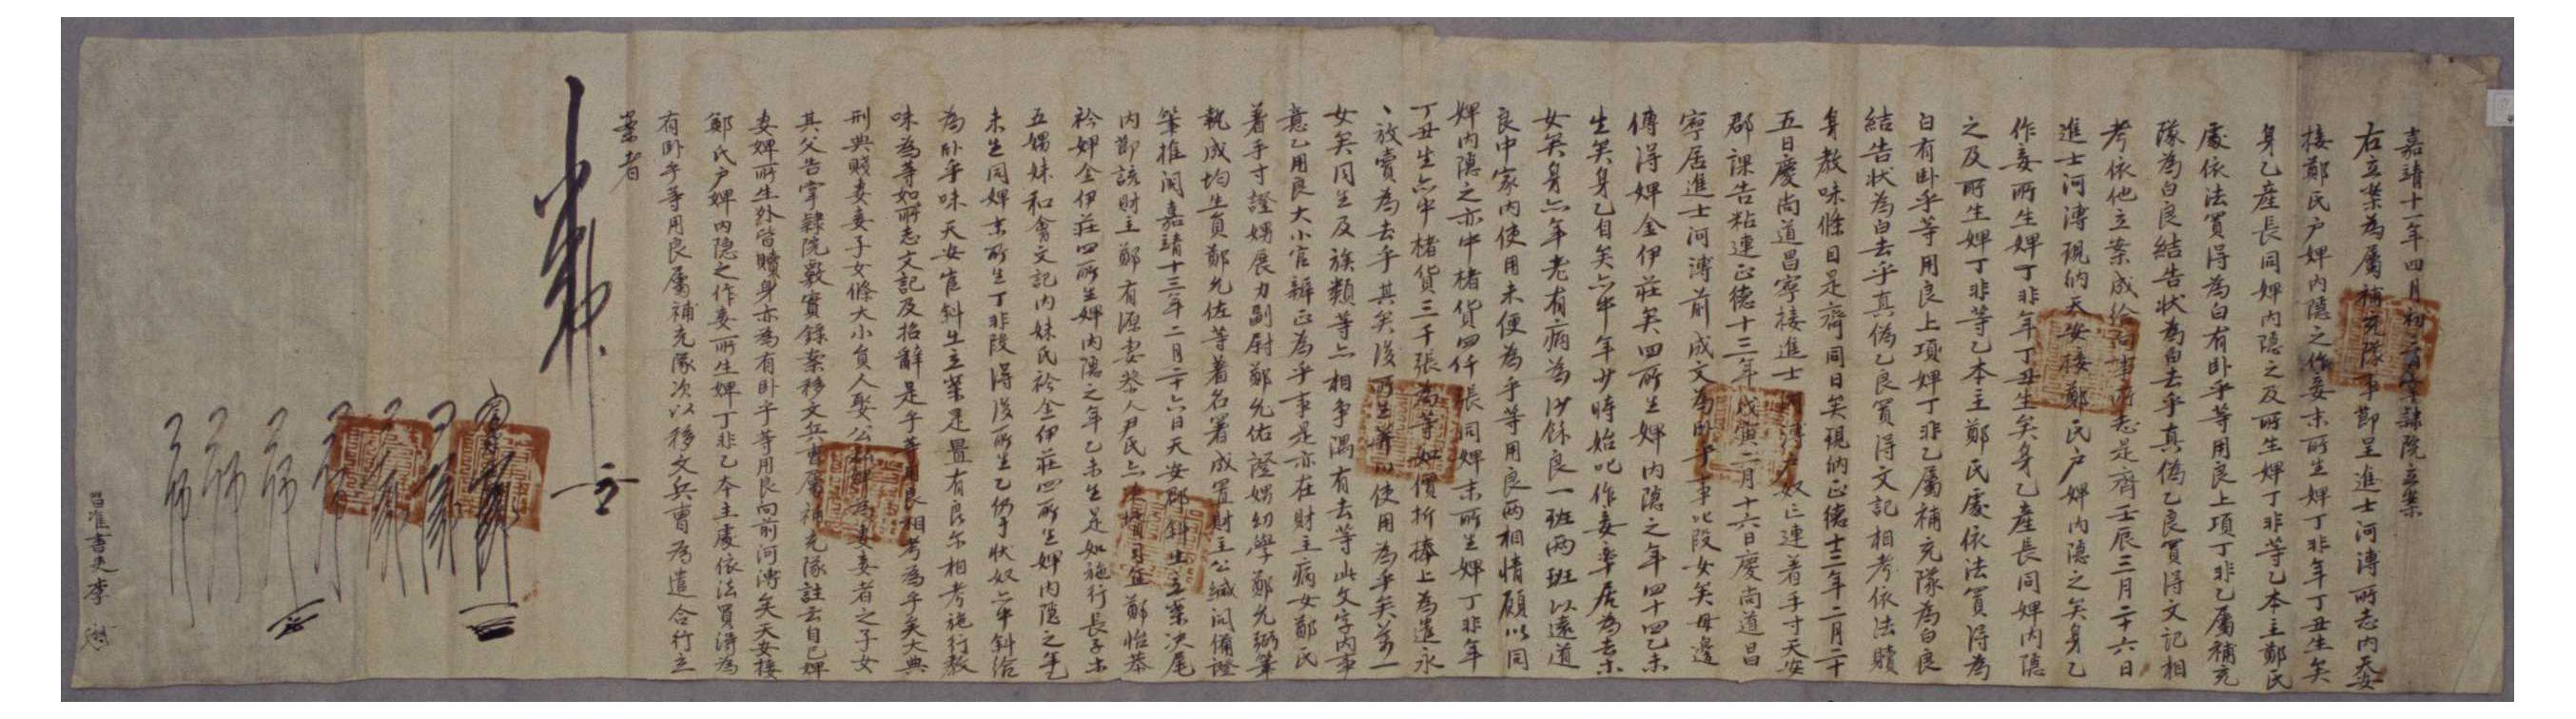 嘉靖十一年四月初二日掌隷院立案
右立案爲屬補充隊事節呈進士河溥所志內天安
接鄭氏戶婢內隱之作妾未所生婢丁非年丁丑生矣
身乙産長同婢內隱之及所生婢丁非等乙本主鄭氏
處依法買得爲白有卧乎等用良上項丁非乙屬補充
隊爲白良結告狀爲白去乎眞僞乙良買得文記相
考依他立案成給向事所志是齊壬辰三月二十六日
進士河溥現納天安接鄭氏戶婢內隱之矣身乙
作妾所生婢丁非年丁丑生矣身乙産長同婢內隱
之及所生婢丁非等乙本主鄭氏處依法買得爲
白有卧乎等用良上項婢丁非乙屬補充隊爲白良
結告狀爲白去乎眞僞乙良買得文記相考依法贖
身敎味條目是齊同日矣現納正德十三年二月二十
五日慶尙道昌寧接進士河溥戶奴三連着手寸天安
郡課告粘連正德十三年戊寅二月十六日慶尙道昌
寧居進士河溥前成文爲卧乎事叱段女矣母邊
傳得婢金伊莊矣四所生婢內隱之年四十四乙未
生矣身乙自矣亦中年少時始叱作妾率居爲去乎
女矣身亦年老有病爲沙餘良一班兩班以遠道
良中家內使用未便爲乎等用良兩相情願以同
婢內隱之亦中楮貨四仟張同婢未所生婢丁非年
丁丑生亦中楮貨三千張爲等如價折捧上爲遣永
永放賣爲去乎其矣後所生幷以使用爲乎矣萬一
女矣同生及族類等亦相爭隅有去等此文字內事
意乙用良大小官辨正爲乎事是亦在財主病女鄭氏
着手寸證甥展力副尉鄭允佑證甥幼學鄭允弼筆
執成均生員鄭允佐等着名署成置財主公緘問備證
筆推閱嘉靖十三年二月二十六日天安郡斜出立案決尾
內節該財主鄭有源妻恭人尹氏亦未壻司正鄭怡恭
衿婢金伊莊四所生婢內隱之年乙未生是如施行長子未
五娚妹和會文記內妹氏衿金伊莊四所生婢內隱之年
未生同婢未所生丁非段得後所生乙仍于狀奴亦中斜給
爲卧乎味天安官斜出立案是置有良尒相考施行敎
味爲等如所志文記及招辭是乎等用良相考爲乎矣大典
刑典賤妻妾子女條大小員人娶公私婢爲妻妾者之子女
其父告掌隷院覈實錄案移文兵曹屬補充隊註云自己婢
妻婢所生外皆贖身亦爲有卧乎等用良向前河溥矣天安接
鄭氏戶婢內隱之作妾所生婢丁非乙本主處依法買得爲
有卧乎等用良屬補充隊次以移文兵曹爲遣合行立
案者
昌准書吏李